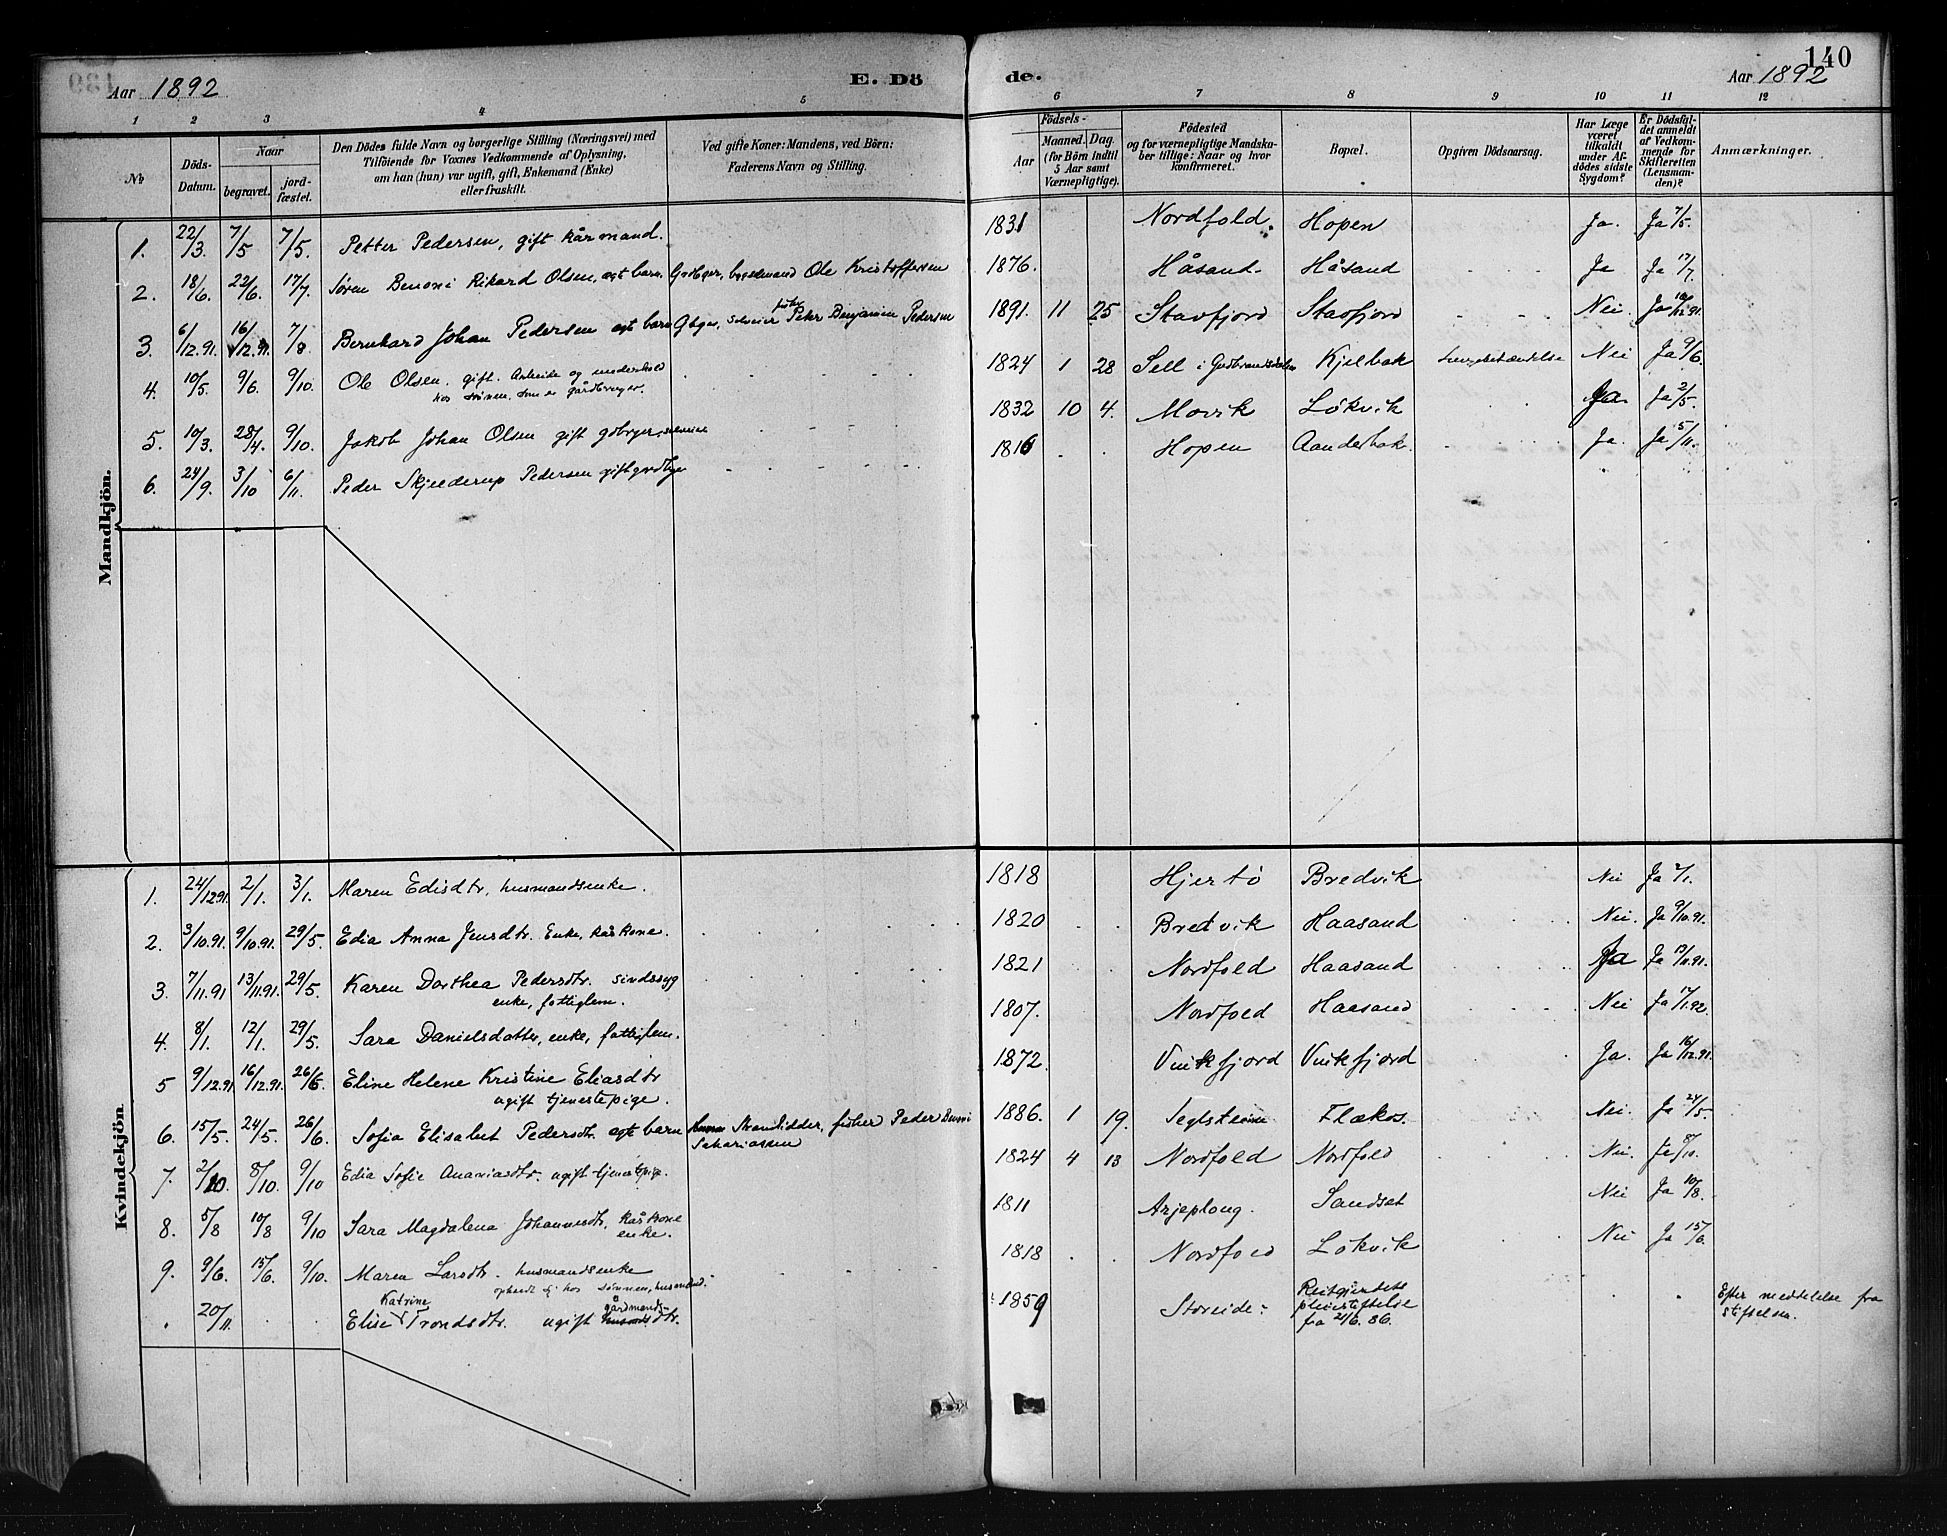 Aar 1892
E. Dö
de.
140
Aar 1892
1 2 3 4 5 6 7 8 9 10 11 12
№
Döds-Datum.
Naar
begravet.
jord-fæstet.
Den Dödes fulde Navn og borgerlige Stilling (Næringsvei) med
Tilföiende for Voxnes Vedkommende af Oplysning,
om han (hun) var ugift, gift, Enkemand (Enke)
eller fraskilt.
Ved gifte Koner: Mandens, ved Börn:
Faderens Navn og Stilling.
Födsels-
Aar
Maaned. (for Börn indtil 5 Aar samt Værnepligtige).
Dag.
Födested
og for værnepligtige Mandska-
ber tillige: Naar og hvor
konfirmeret.
Bopæl.
Opgiven Dödsaarsag.
Har Læge været tilkaldt under Af-dödes sidste Sygdom?
Er Dödsfal-det anmeldt af Vedkom-mende for Skifteretten (Lensman-den)?
Anmærkninger.
Mandkjön.
1. 22/3. 7/5 7/5. Petter Pedersen, gift kårmand. 1831 Nordfold. Hopen Ja. Ja 7/5.
2. 18/6. 22/6. 17/7. Søren Benoni Rikard Olsen, egt barn Ole Kristoffersen 1876. Håsand. Håsand Ja Ja 17/7.
3. 6/12.91. 16/12.91. 7/8. Bernhard Johan Pedersen egt barn Gbger, selveier fisker Peter Benjamin Pedersen 1891. 11 25 Stavfjord Stavfjord Nei. Ja 16/12.91.
4. 10/5. 9/6. 9/10. Ole Olsen. gift. Arbeide og underhold
hos sønnen, som er gårdbruger. 1824 1 28 Sell i Gudbrandsdalen Kjelbak Lungebetændelse Nei Ja 9/6.
5. 10/3. 28/4. 9/10. Jakob Johan Olsen gift gdbrger, selveier 1832 10 4. Movik Løkvik Ja. Ja 2/5.
6. 24/9. 3/10 6/11. Peder Skjelderup Pedersen gift 1816 Hopen Aanderbak. Ja. Ja 5/11.
Kvindekjön.
1. 24/12 91. 2/1. 3/1. Maren Edisdtr, husmandsenke. 1818 Hjertø Bredvik Nei Ja 2/1.
2. 3/10.91. 9/10.91. 29/5. Edia Anna Jensdtr. Enke, kårkone. 1820 Bredvik Haasand Nei. Ja 9/10.91.
3. 7/11.91 13/11.91. 29/5. Karen Dorthea Pedersdtr. sindssyg
enke, fattiglem. 1821 Nordfold Haasand Ja Ja 13/11.91.
4. 8/1. 12/1. 29/5. Sara Danielsdatter, enke, fattiglem. 1807. Nordfold Haasand Nei Ja 17/1.92.
5 9/12.91 16/12.91. 26/6. Eline Helene Kristine Eliasdtr
ugift tjenestepige. 1872. Vinkfjord Vinkfjord Ja. Ja 16/12.91.
6. 15/5. 24/5. 26/6. Sofia Elisabet Pedersdtr. egte barn Strandsidder, fisher Peder Benoni
Sakariassen 1886. 1 19. Seglsteinn Flækos. Nei. Ja 24/5.
7. 2/10. 8/10. 9/10 Edia Sofie Ananiasdtr. ugift tjenestepige. 1824 4 13 Nordfold Nordfold Nei. Ja 8/10.
8. 5/8 10/8 9/10 Sara Magdalena Johannesdtr. kårkone
enke. 1811 Arjeplong. Sandset Nei Ja 10/8.
9. 9/6. 15/6. 9/10. Maren Larsdtr. husmandsenke
opholdt sig hos sønnen, husmand. 1818 Nordfold Løkvik Nei Ja 15/6.
20/11. Elise Katrine Trondsdtr. ugift gårdmandsdtr. 1859 Storeide. Reitgjerdets
pleiestiftelse
fra 21/6. 86. Efter meddelelse fra
stiftelsen.